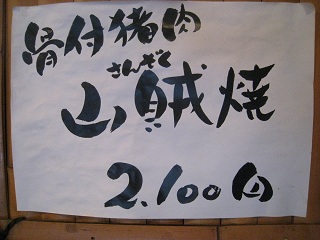 骨付猪肉
さんぞく
山賊焼
2.100円